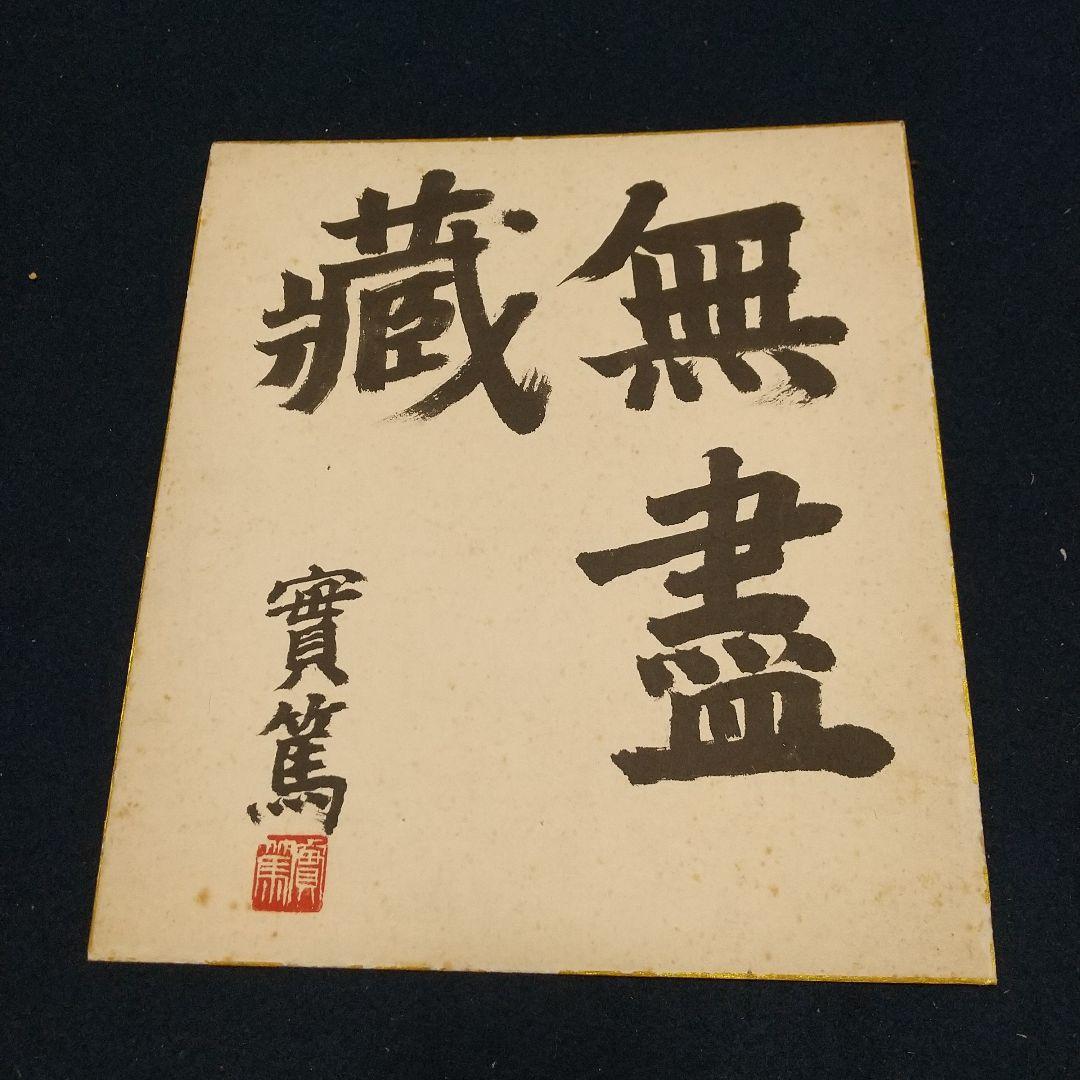 無盡
藏
實篤
實篤